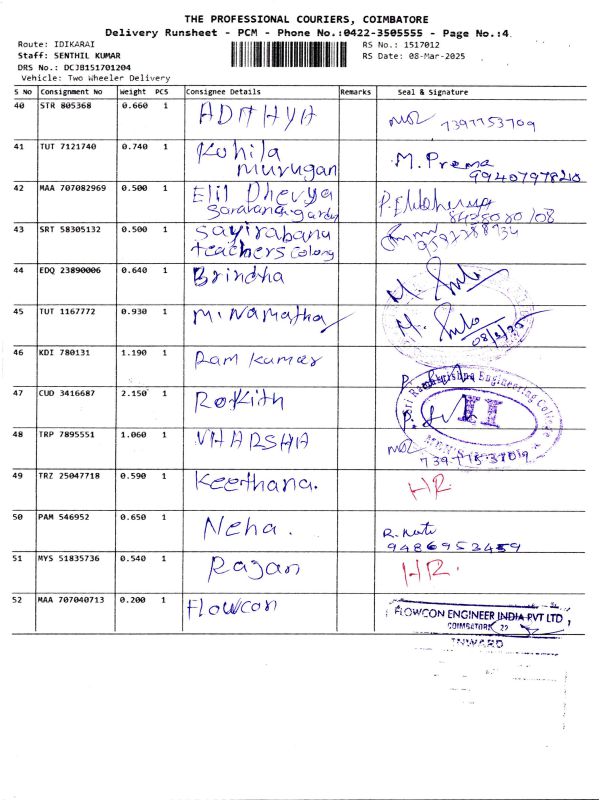 THE PROFESSIONAL COURIERS, COIMBATORE
Delivery Runsheet - PCM - Phone No.:0422-3505555 - Page No.:4
Route: IDIKARAI
RS No.: 1517012
Staff: SENTHIL KUMAR
RS Date: 08-Mar-2025
DRS No.: DCJB151701204
Vehicle: Two Wheeler Delivery
S No Consignment No Weight PCS Consignee Details Remarks Seal & Signature
40 STR 805368 0.660 1 ADITHYA
41 TUT 7121740 0.740 1 Kohila M. Prema
murugan 9940797820
42 MAA 707082969 0.500 1 Elil Dhevya
Saravana gardn
43 SRT 58305132 0.500 1 Sayirabanu
teachers Colony
44 EDQ 23890006 0.640 1 Brindha
45 TUT 1167772 0.930 1 M. Namatha
08/3/25
46 KDI 780131 1.190 1 Ram kumar
47 CUD 3416687 2.150 1 Rokith
Sri Ramakrishna Engineering College
48 TRP 7895551 1.060 1 VHARSHA
49 TRZ 25047718 0.590 1 Keerthana. HR.
50 PAM 546952 0.650 1 Neha.
9486953459
51 MYS 51835736 0.540 1 Rajan HR.
52 MAA 707040713 0.200 1 Flowcon
FLOWCON ENGINEER INDIA PVT LTD
COIMBATORE
INWARD